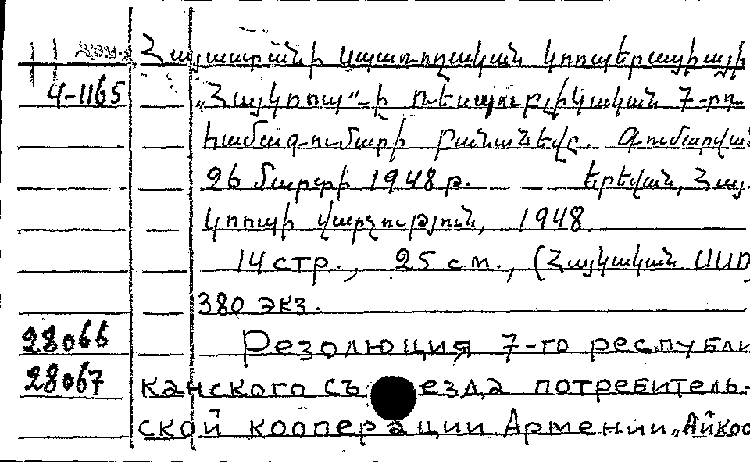 Հայաստանի սպառողական կոոպերացիայի
4-1165 „Հայկոոպ“-ի ռեսպուբլիկական 7-րդ
համագումարի բանաձևը. Գումարված
26 մարտի 1948 թ. Երևան, Հայ-
կոոպի վարչություն, 1948.
14 стр., 25 см., (Հայկական ՍՍՌ)
380 экз.
28066 Резолюция 7-го республи
28067 канского съезда потребитель-
ской кооперации Армении „Айкоо